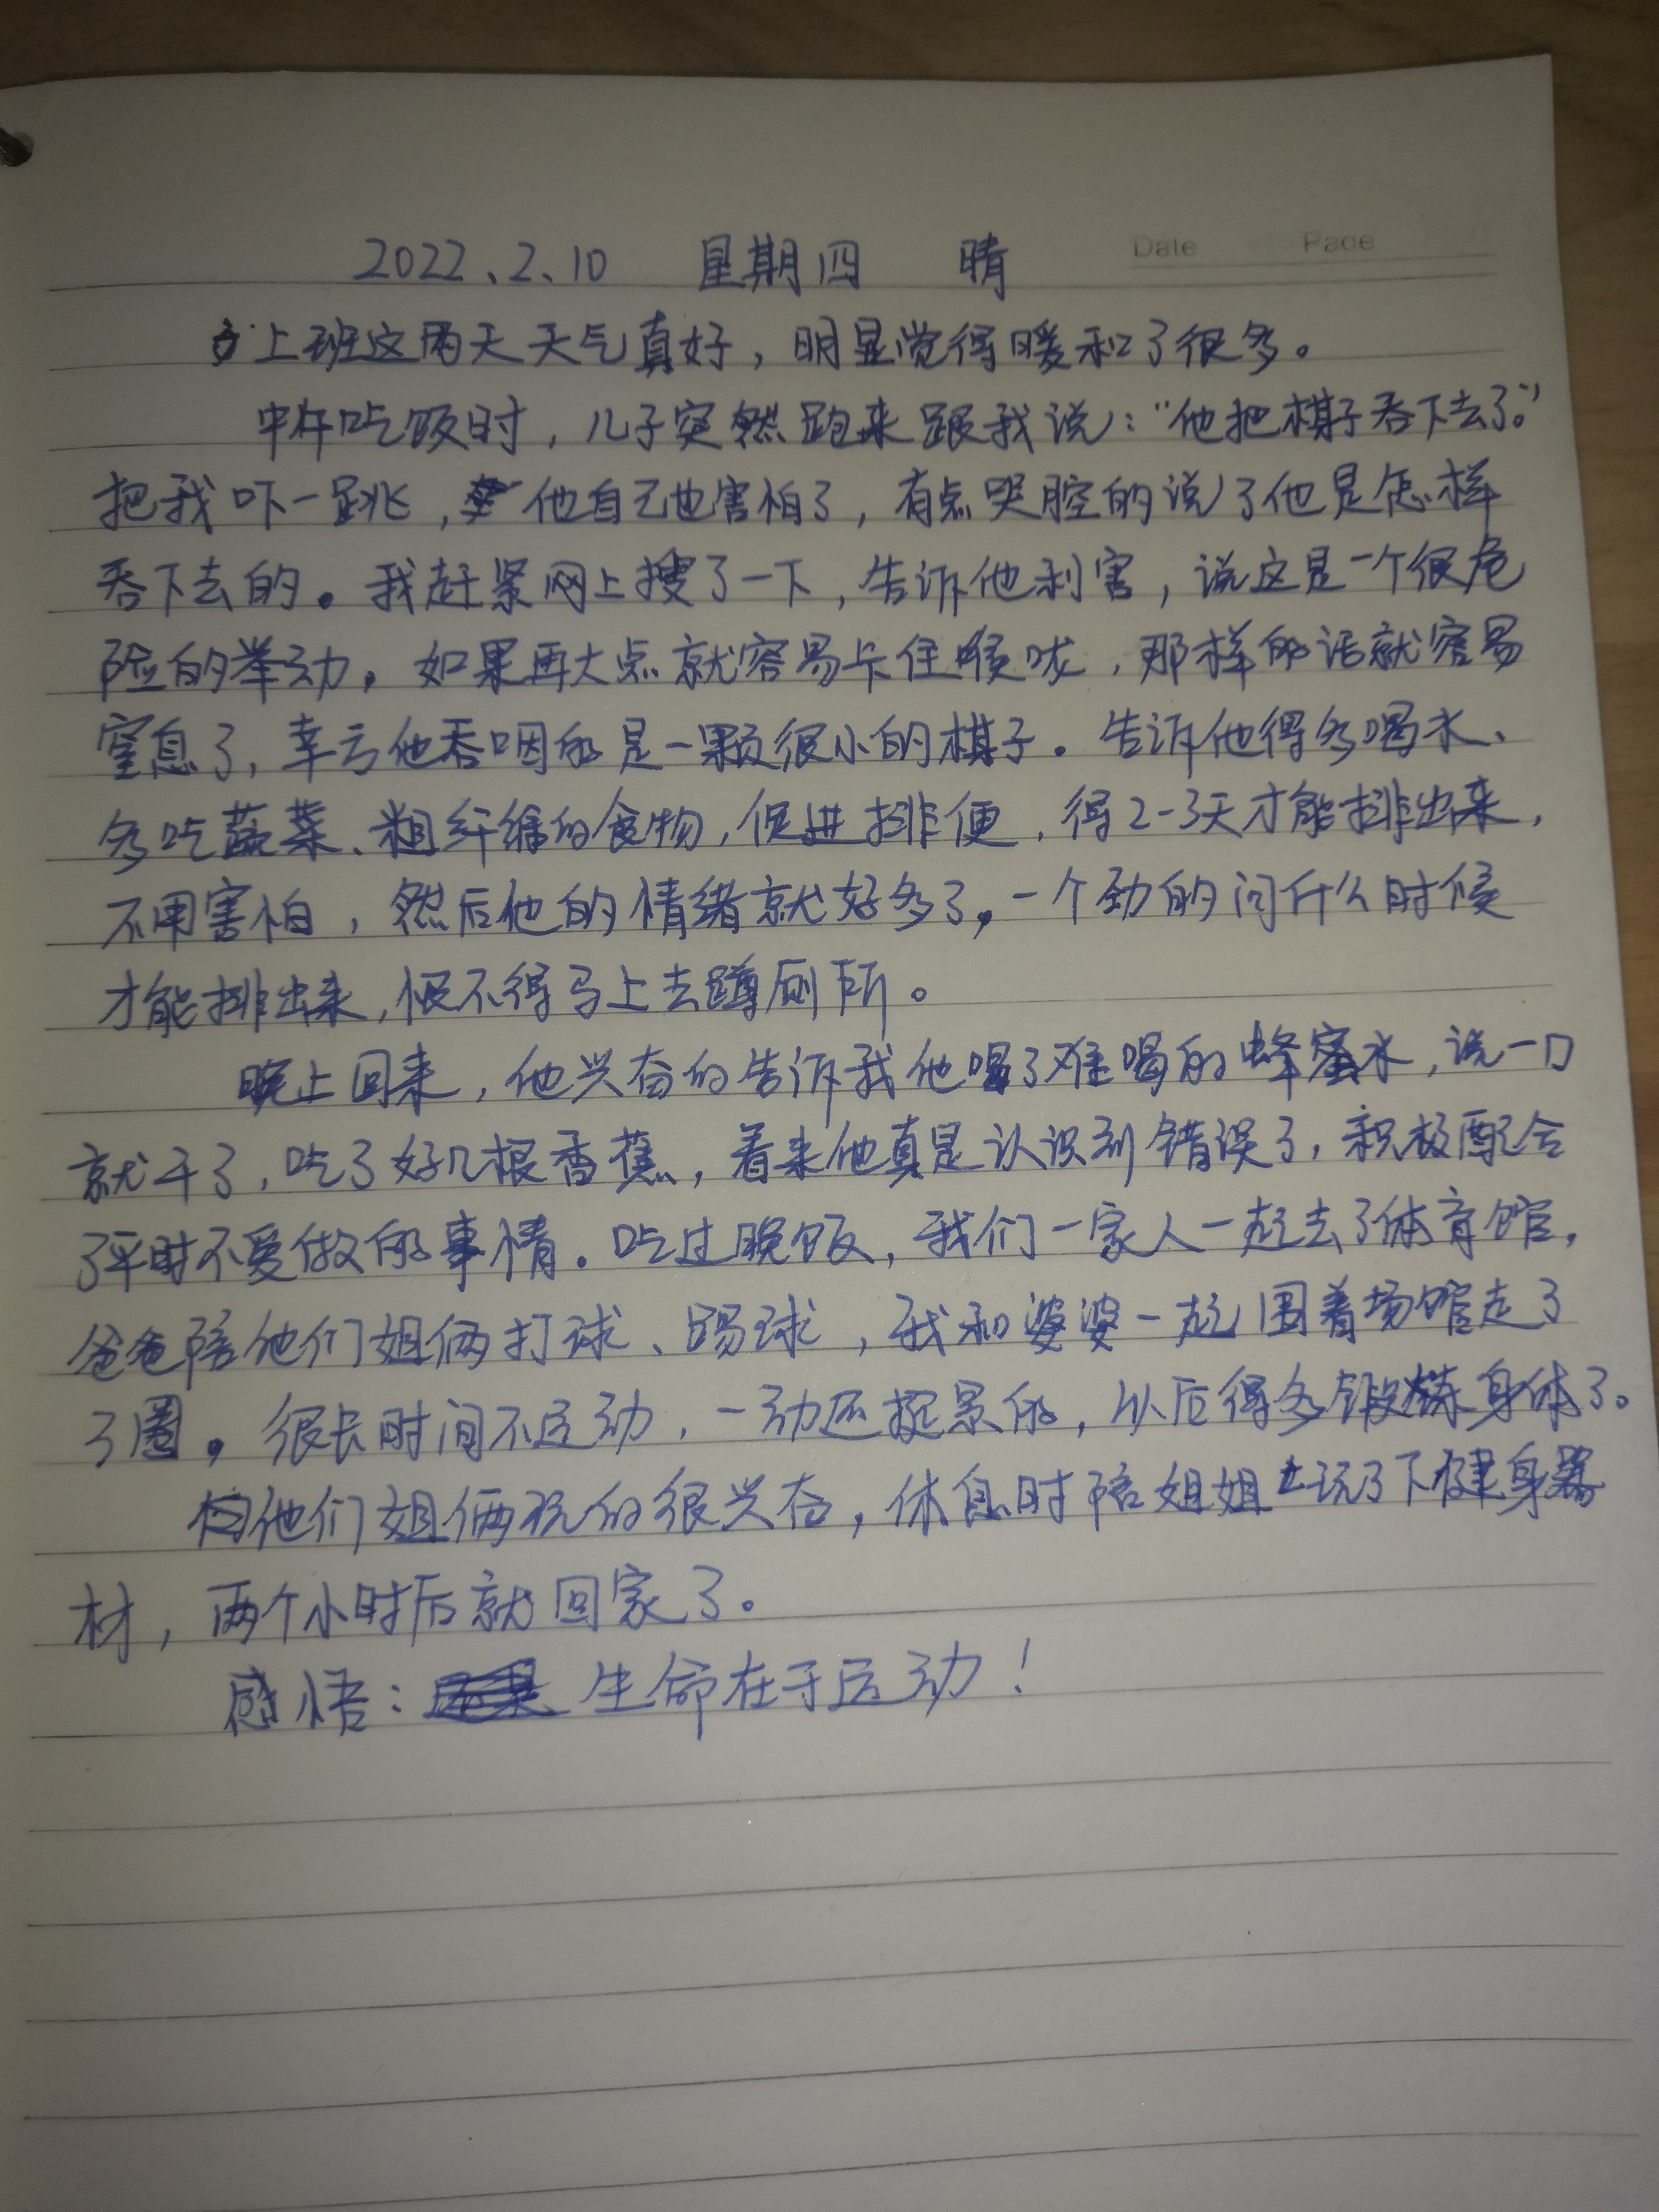 Date Page
2022、2、10 星期四 晴
上班这两天天气真好，明显觉得暖和了很多。
中午吃饭时，儿子突然跑来跟我说：“他把棋子吞下去了。”
把我吓一跳，他自己也害怕了，有点哭腔的说了他是怎样
吞下去的。我赶紧网上搜了一下，告诉他利害，说这是一个很危
险的举动。如果再大点就容易卡住喉咙，那样的话就容易
窒息了，幸亏他吞咽的是一颗很小的棋子。告诉他得多喝水、
多吃蔬菜、粗纤维的食物，促进排便，得2-3天才能排出来，
不用害怕，然后他的情绪就好多了，一个劲的问什么时候
才能排出来，恨不得马上去蹲厕所。
晚上回来，他兴奋的告诉我他喝了难喝的蜂蜜水，说一口
就干了，吃了好几根香蕉，看来他真是认识到错误了，积极配合
了平时不爱做的事情。吃过晚饭，我们一家人一起去了体育馆，
爸爸陪他们姐俩打球、踢球，我和婆婆一起围着场馆走了
了圈。很长时间不运动，一动还挺累的，以后得多锻炼身体了。
他们姐俩玩的很兴奋，休息时陪姐姐玩了下健身器
材，两个小时后就回家了。
感悟：生命在于运动！